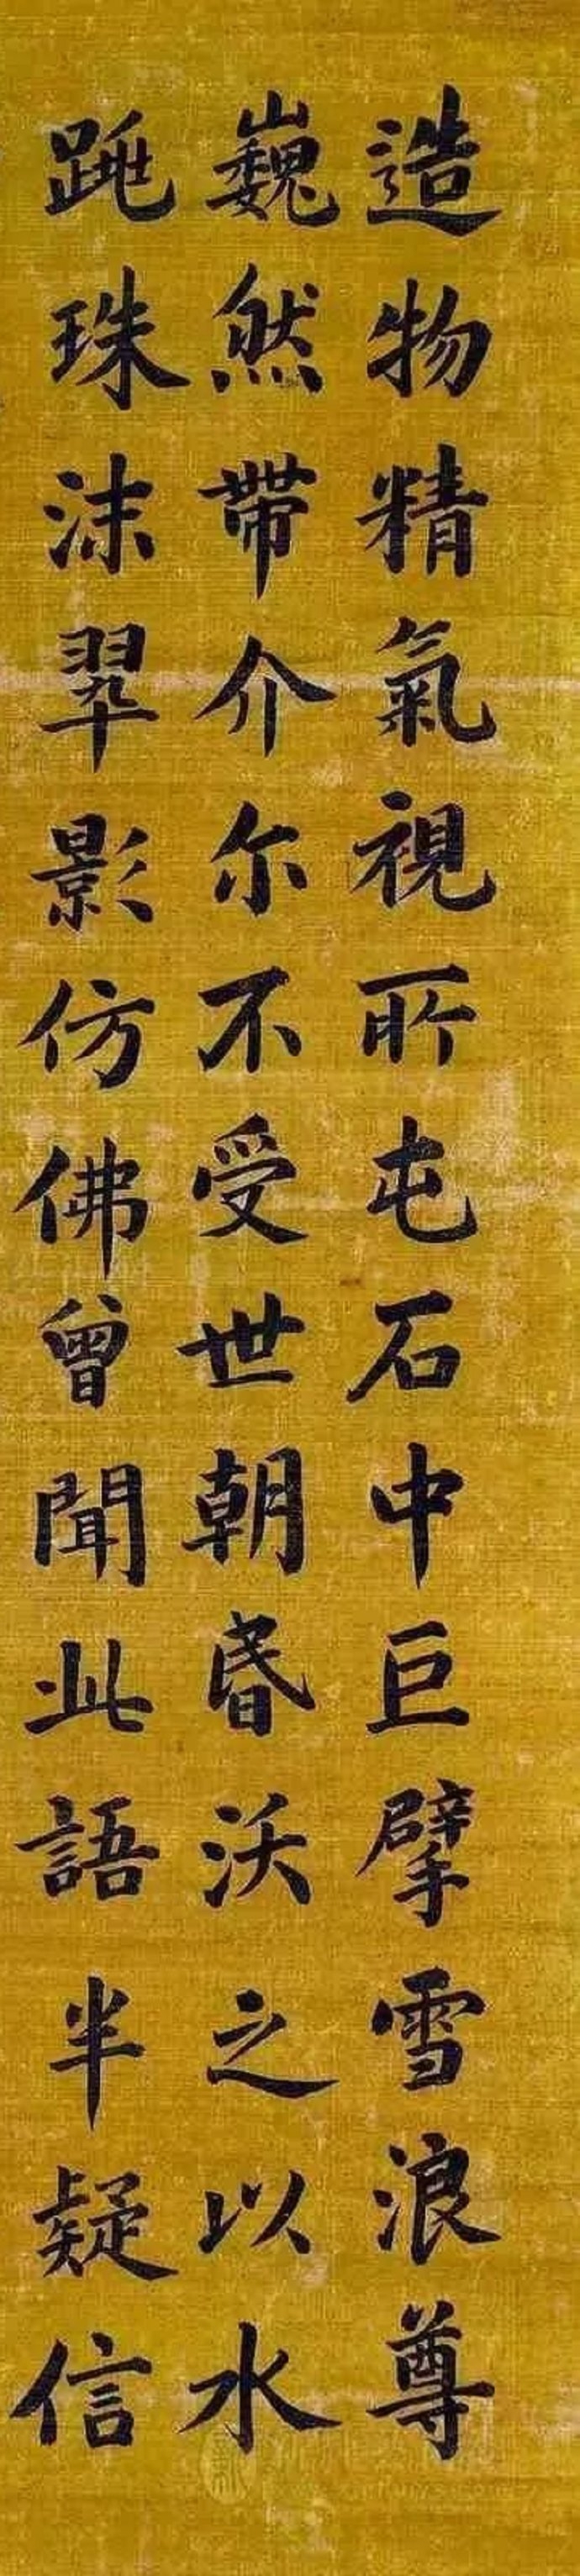 造物精氣視所屯石中巨擘雪浪尊
巍然帶介尔不受世朝昏沃之以水
跳珠沫翠影仿佛曾聞此語半疑信